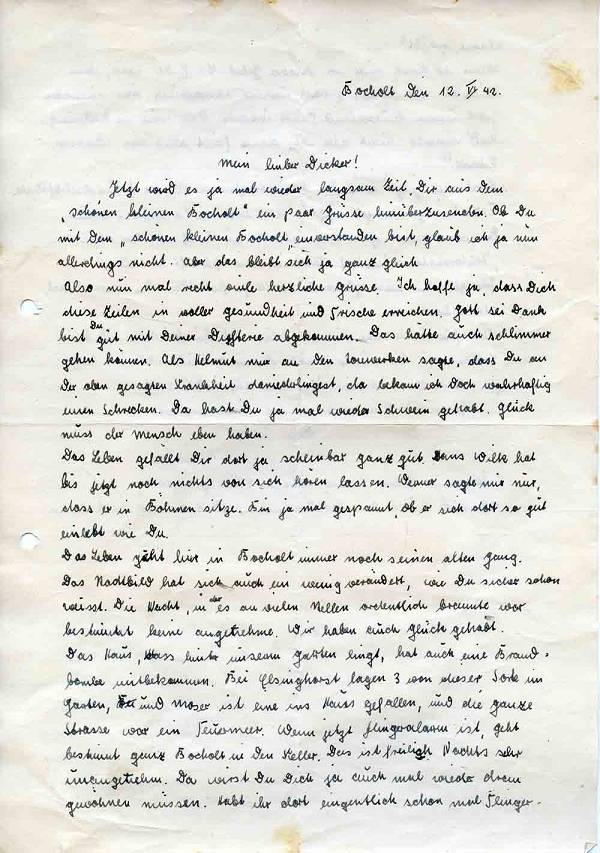 Bocholt den 12. VI 42.
Mein lieber Dicker!
Jetzt wird es ja mal wieder langsam Zeit, Dir aus dem
„schönen kleinen Bocholt" ein paar Grüsse hinüberzusenden. Ob Du
mit dem „schönen kleinen Bocholt" einverstanden bist, glaub ich ja nun
allerdings nicht. Aber das bleibt sich ja ganz gleich
Also nun mal recht viele herzliche Grüsse. Ich hoffe ja, dass Dich
diese Zeilen in voller Gesundheit und Frische erreichen. Gott sei Dank
bist Du gut mit Deiner Dipfterie abgekommen. Das hätte auch schlimmer
gehen können. Als Helmut mir an den Torwerken sagte, dass Du an
der oben gesagten Krankheit daniederliegest, da bekam ich doch wahrhaftig
einen Schrecken. Da hast Du ja mal wieder Schwein gehabt. Glück
muss der Mensch eben haben.
Das Leben gefällt Dir dort ja scheinbar ganz gut. Hans Wilk hat
bis jetzt noch nichts von sich hören lassen. Werner sagte mir nur,
dass er in Böhmen sitze. Bin ja mal gespannt, ob er sich dort so gut
einlebt wie Du.
Das Leben geht hier in Bocholt immer noch seinen alten Gang.
Das Stadtbild hat sich auch ein wenig verändert, wie Du sicher schon
weisst. Die Nacht, in der es an vielen Stellen ordentlich brannte war
bestimmt keine angenehme. Wir haben auch Glück gehabt.
Das Haus, dass hinter unserm Garten liegt, hat auch eine Brand=
bombe mitbekommen. Bei Elsinghorst lagen 3 von dieser Sorte im
Garten, und Moser ist eine ins Haus gefallen, und die ganze
Strasse war ein Feuermeer. Wenn jetzt Fliegeralarm ist, geht
bestimmt ganz Bocholt in den Keller. Das ist freilich Nachts sehr
unangenehm. Da wirst Du Dich ja auch mal wieder dran
gewöhnen müssen. Habt ihr dort eigentlich schon mal Flieger-